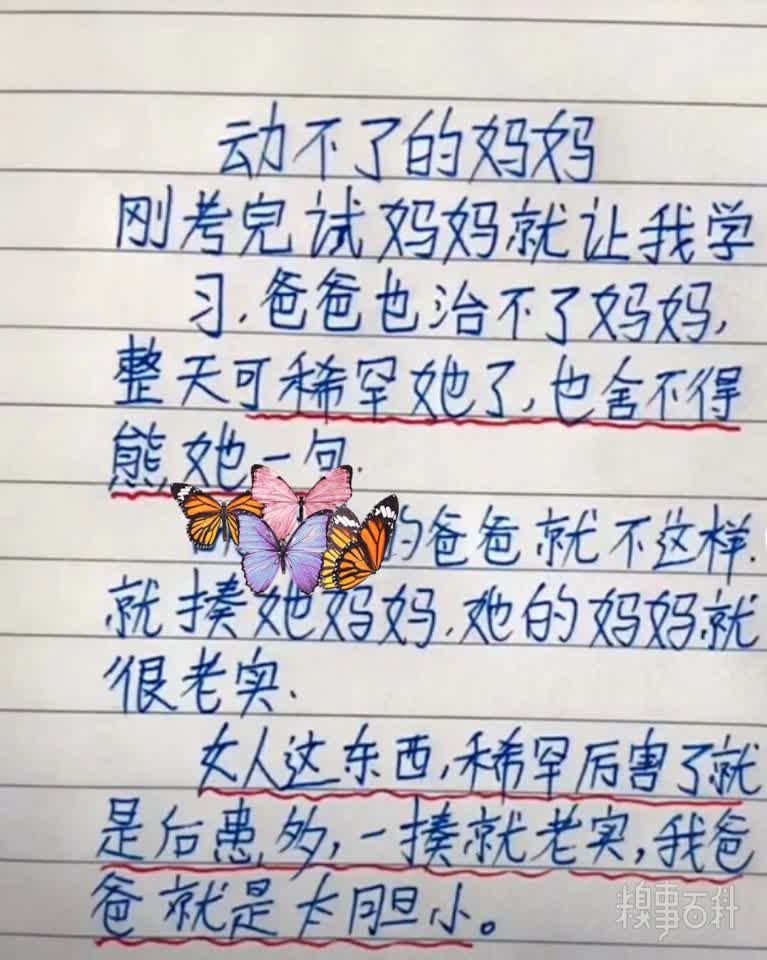 动不了的妈妈
刚考完试妈妈就让我学
习,爸爸也治不了妈妈,
整天可稀罕她了,也舍不得
熊她一句.
的爸爸就不这样.
就揍她妈妈.她的妈妈就
很老实.
女人这东西,稀罕厉害了就
是后患多,一揍就老实,我爸
爸就是太胆小。
糗事百科